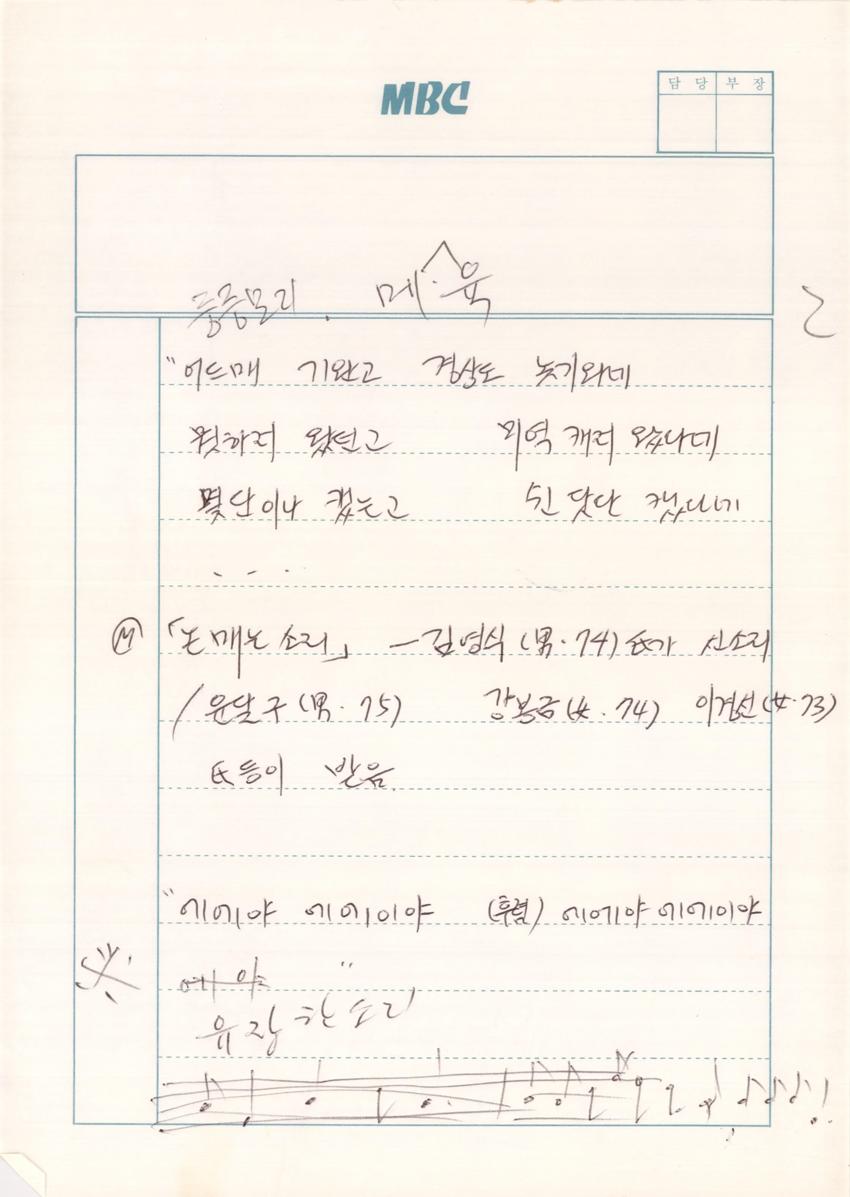 MBC
담 당 부 장
중중모리. 메·육
2
"어드매 기완고 경상도 놋기와네
뭣하러 왔던고 미역 캐러 왔습나데
몇단이나 캤는고 쉰 닷단 캤다네
. - .
Ⓜ 「논매는 소리」 - 김영식(男·74)氏가 선소리
/윤달구(男·75) 강봉금(女·74) 이검선(女·73)
氏등이 받음.
"에에야 에에이야 (후렴) 에에야 에에이야
에야 "
유장한 소리